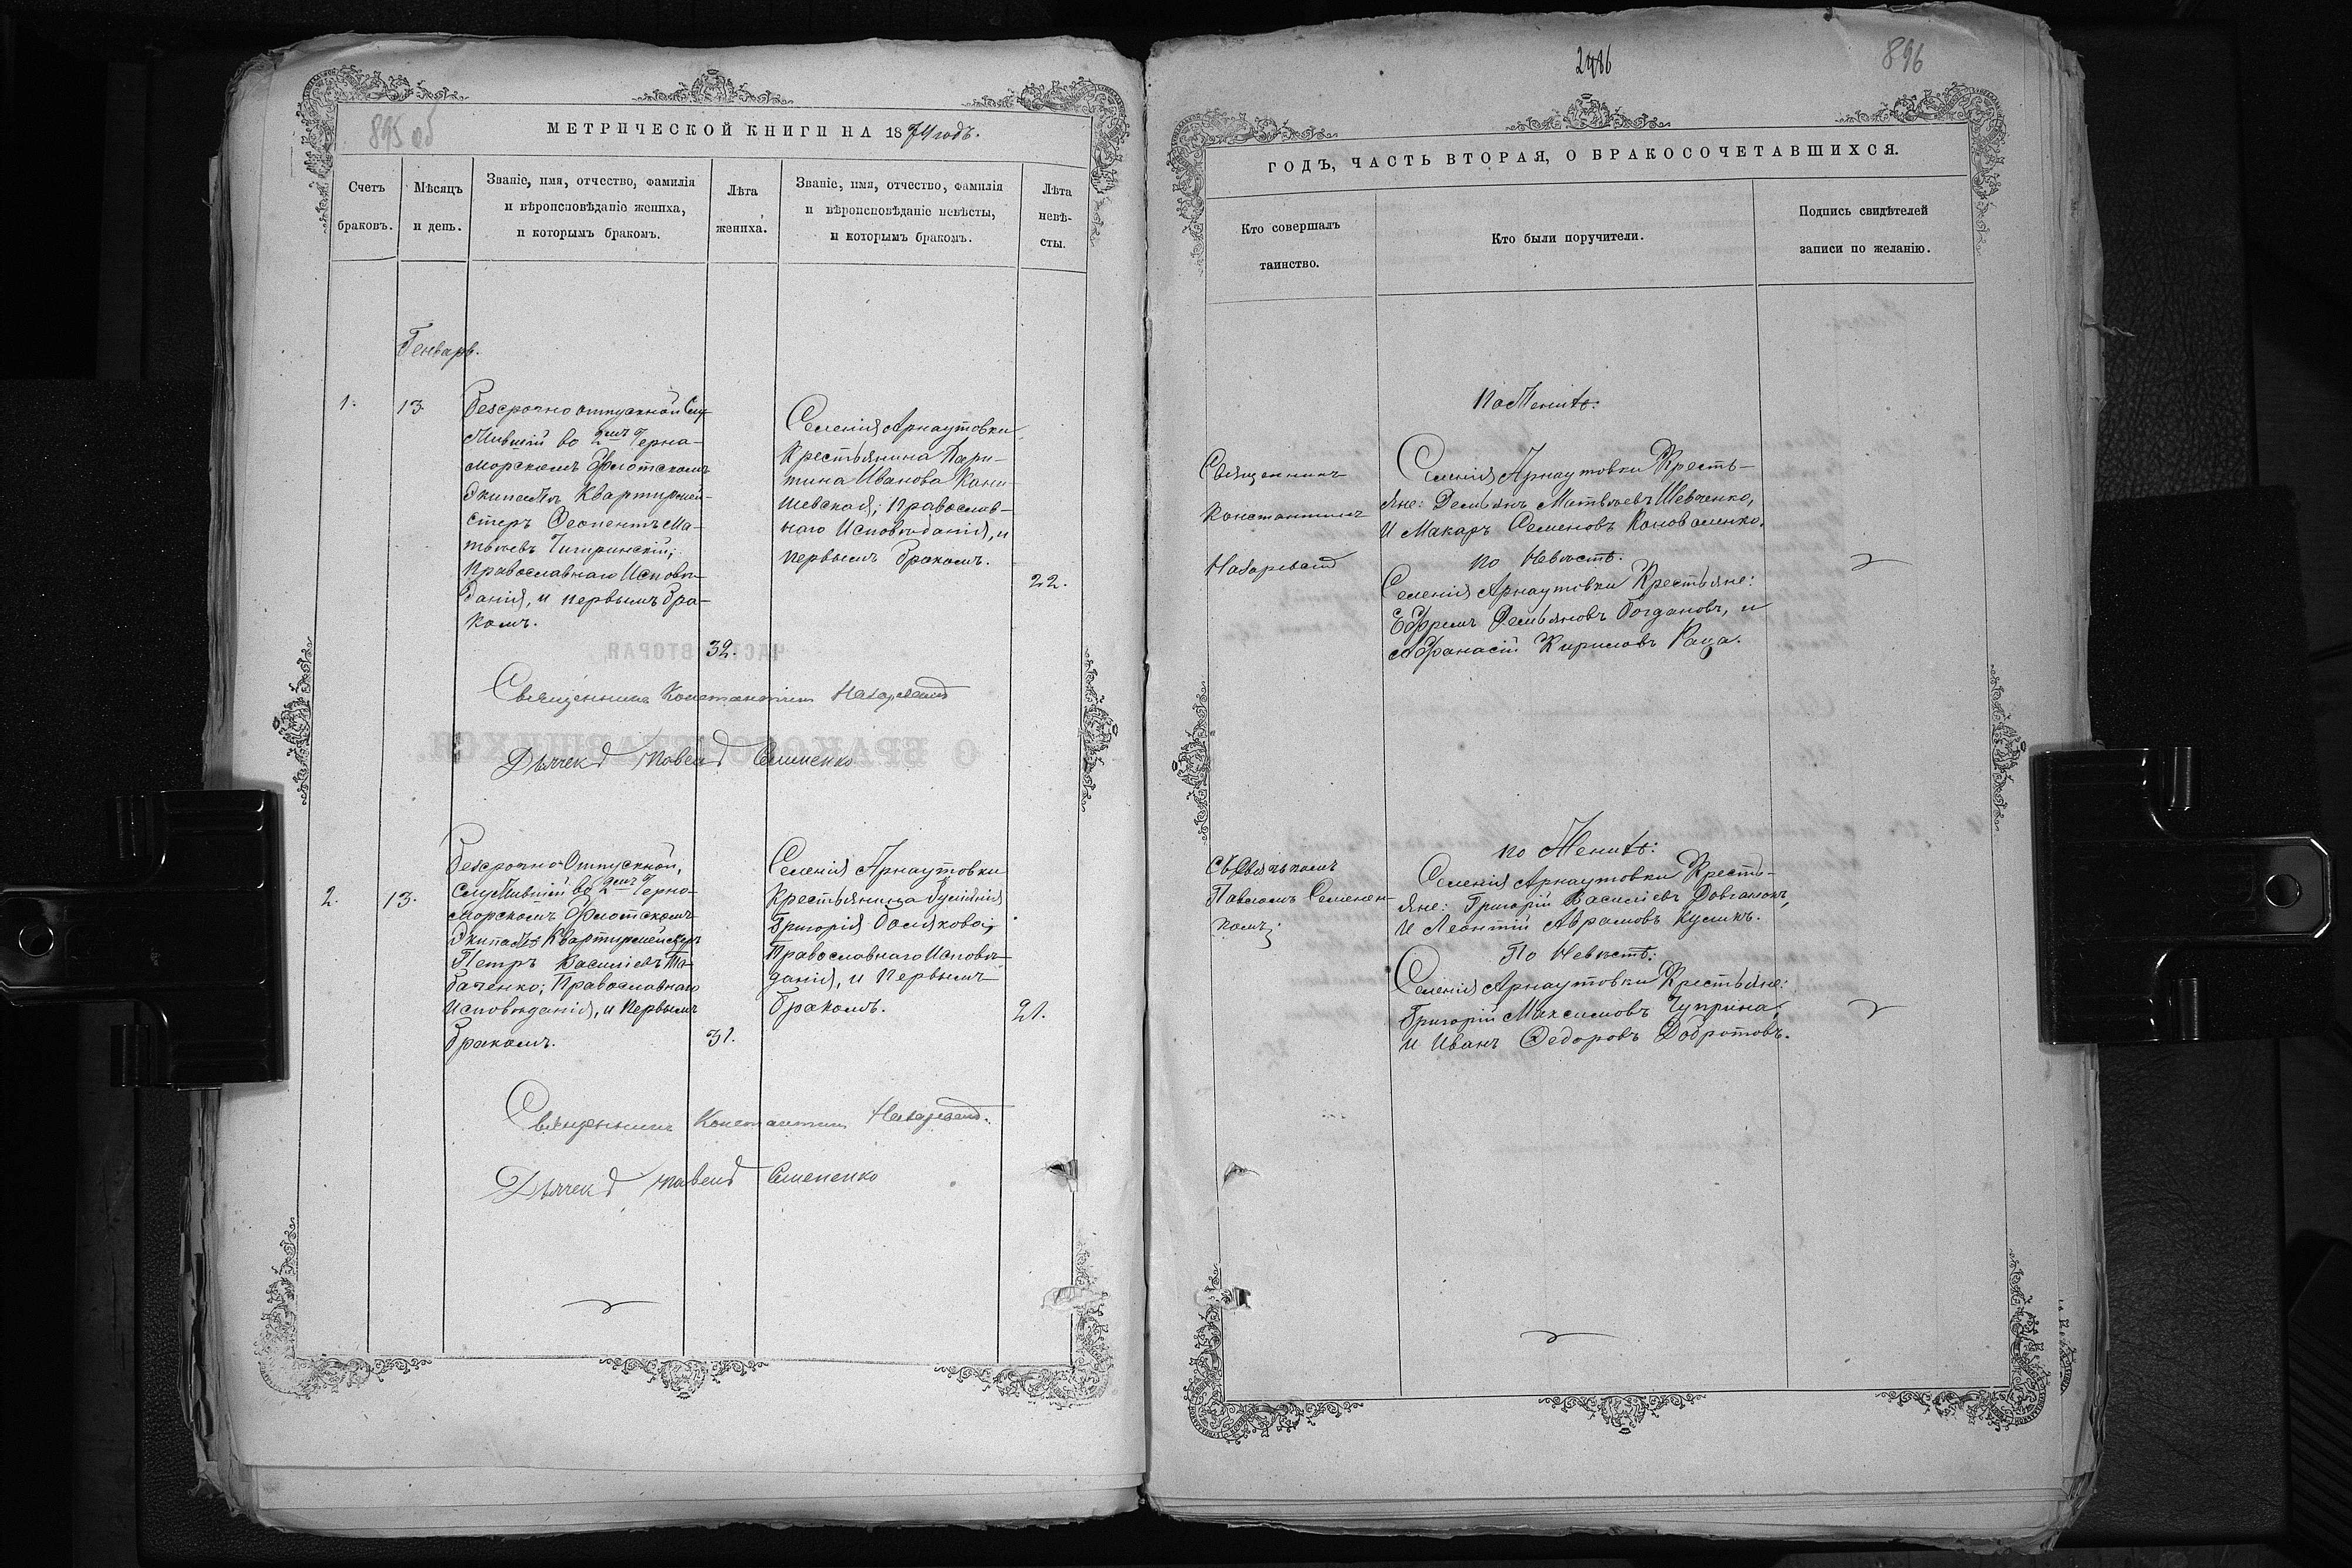 895 об
МЕТРИЧЕСКОЙ КНИГИ НА 1874 годъ.
Счетъ браковъ.
Мѣсяцъ и день.
Званіе, имя, отчество, фамилія
и вѣроисповѣданіе жениха,
и которымъ бракомъ.
Лѣта жениха.
Званіе, имя, отчество, фамилія
и вѣроисповѣданіе невѣсты,
и которымъ бракомъ.
Лѣта невѣ-
сты.
Генварь.
1.
13.
Безсрочно отпускной Слу-
жившій во 2мъ Черно-
морскомъ Флотскомъ
Экипажѣ Квартирмей-
стеръ Ма-
твѣевъ Чигиринскій;
Православнаго Исповѣ-
данія, и первымъ бра-
комъ.
32.
Селенія Арнаутовки
Крестьянина
Иванова
православ-
наго Исповѣданія, и
первымъ бракомъ.
22.
Священникъ Константинъ
Дьячекъ Павелъ Семененко
2.
13.
Безсрочно Отпускной,
Служившій во 2мъ Черно-
морскомъ Флотскомъ
Экипажѣ Квартирмейстеръ
Петръ Василіевъ Тка-
ченко; Православнаго
Исповѣданія, и Первымъ
бракомъ.
31.
Селенія Арнаутовки
Крестьянина
Григорія
Православнаго Исповѣ-
данія, и Первымъ
бракомъ.
21.
Священникъ Константинъ
Дьячекъ Павелъ Семененко
2486
896
ГОДЪ, ЧАСТЬ ВТОРАЯ, О БРАКОСОЧЕТАВШИХСЯ.
Кто совершалъ
таинство.
Кто были поручители.
Подпись свидѣтелей
записи по желанію.
Священникъ
Константинъ
По Женихѣ:
Селенія Арнаутовки Кресть-
яне: Демьянъ Матвѣевъ Шевченко,
И Макаръ Семеновъ Коноваленко.
по Невѣстѣ.
Селенія Арнаутовки Крестьяне:
Ефремъ Демьяновъ Богдановъ, и
Афанасій Кириловъ Раца.
Съ Дьячкомъ
Павломъ Семенен-
комъ;
по Женихѣ:
Селенія Арнаутовки Кресть-
яне: Григорій Василіевъ
И Леонтій Аврамовъ Куликъ.
По Невѣстѣ:
Селенія Арнаутовки Крестьяне:
Григорій Максимовъ Чуприна,
И Иванъ Федоровъ Добротовъ.